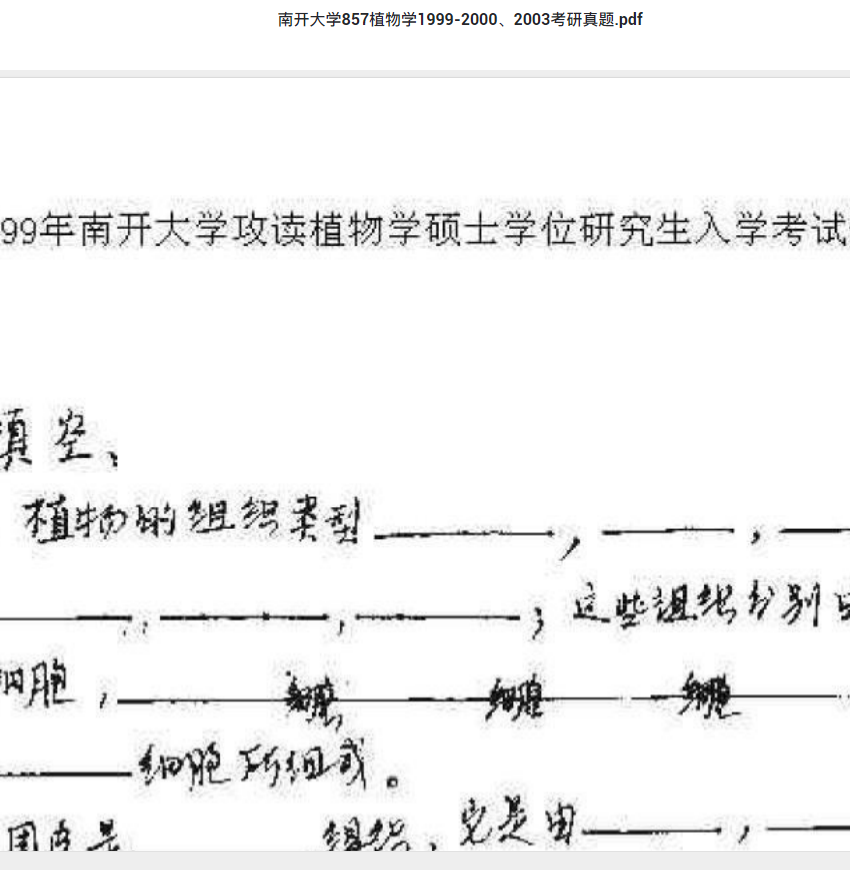 南开大学857植物学1999-2000、2003考研真题.pdf
99年南开大学攻读植物学硕士学位研究生入学考试
填空、
植物的组织类型______，______，______
______，______，______；这些组织分别由
细胞，______细胞，______细胞______细胞______
______细胞所组成。
周皮是______组织，它是由______，______